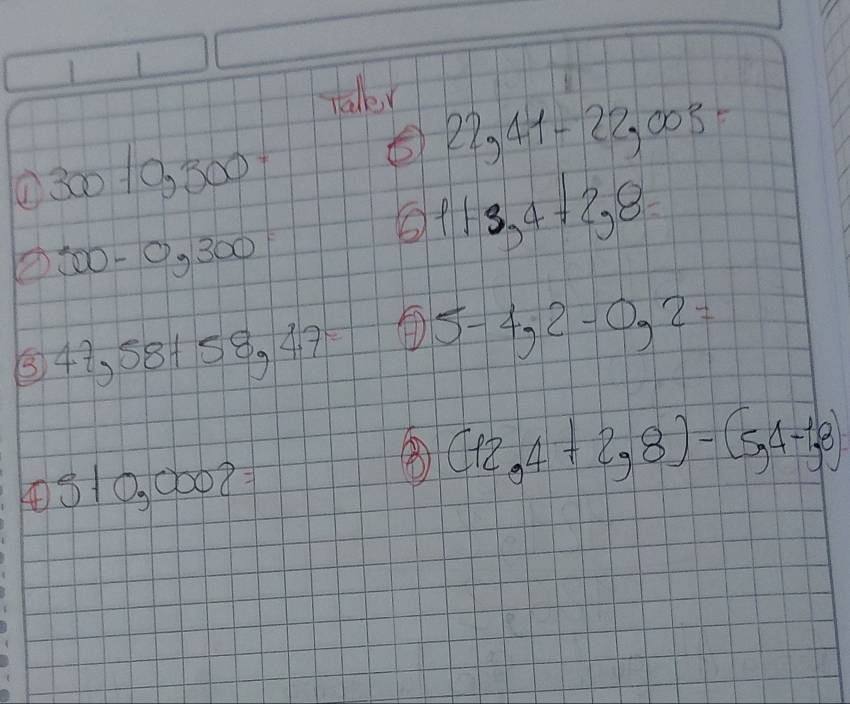 Taller
① 300 + 0,300 =
② 500 - 0,300 =
③ 47,58 + 58,47 =
④ 5 + 0,0002 =
⑤ 22,41 - 22,003 =
⑥ 1 + 3,4 + 2,8 =
⑦ 5 - 1,2 - 0,2 =
⑧ (12,4 + 2,8) - (5,4 - 1,8)